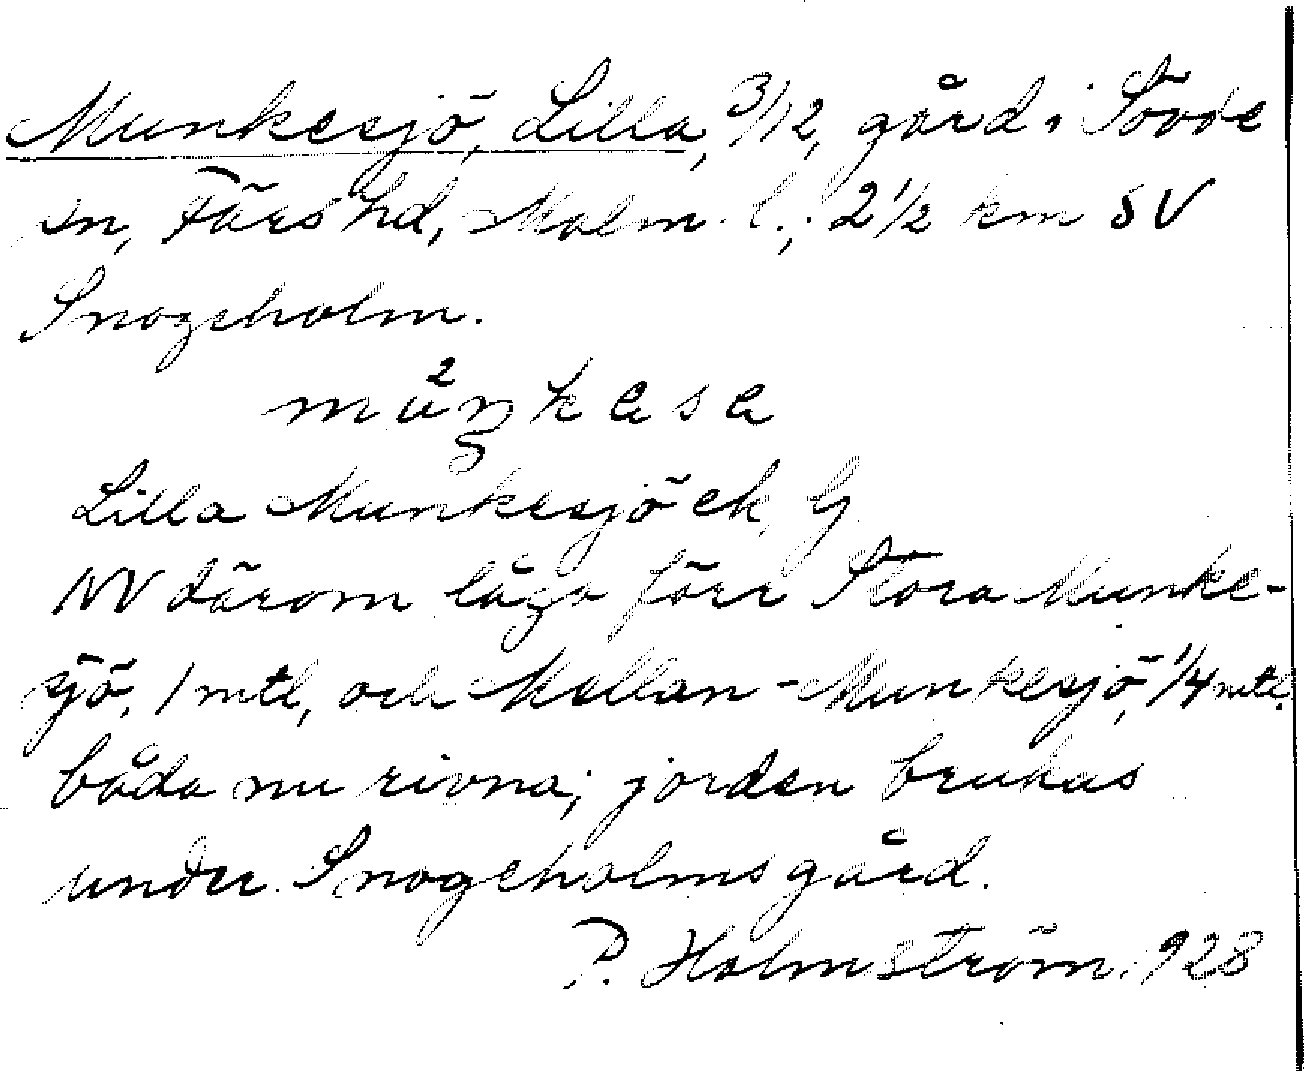 Munkesjö, Lilla, 3/12, gård i Sövde
sn, Färs hd, Malm. l.; 2 1/2 km SV
Snogeholm.
Lilla Munkesjö ek, G
NV därom låga förr Stora Munke-
sjö, 1 mtl, och Mellan-Munkesjö, 1/4 mtl.
båda nu rivna; jorden brukas
under Snogeholms gård.
P. Holmström 1928